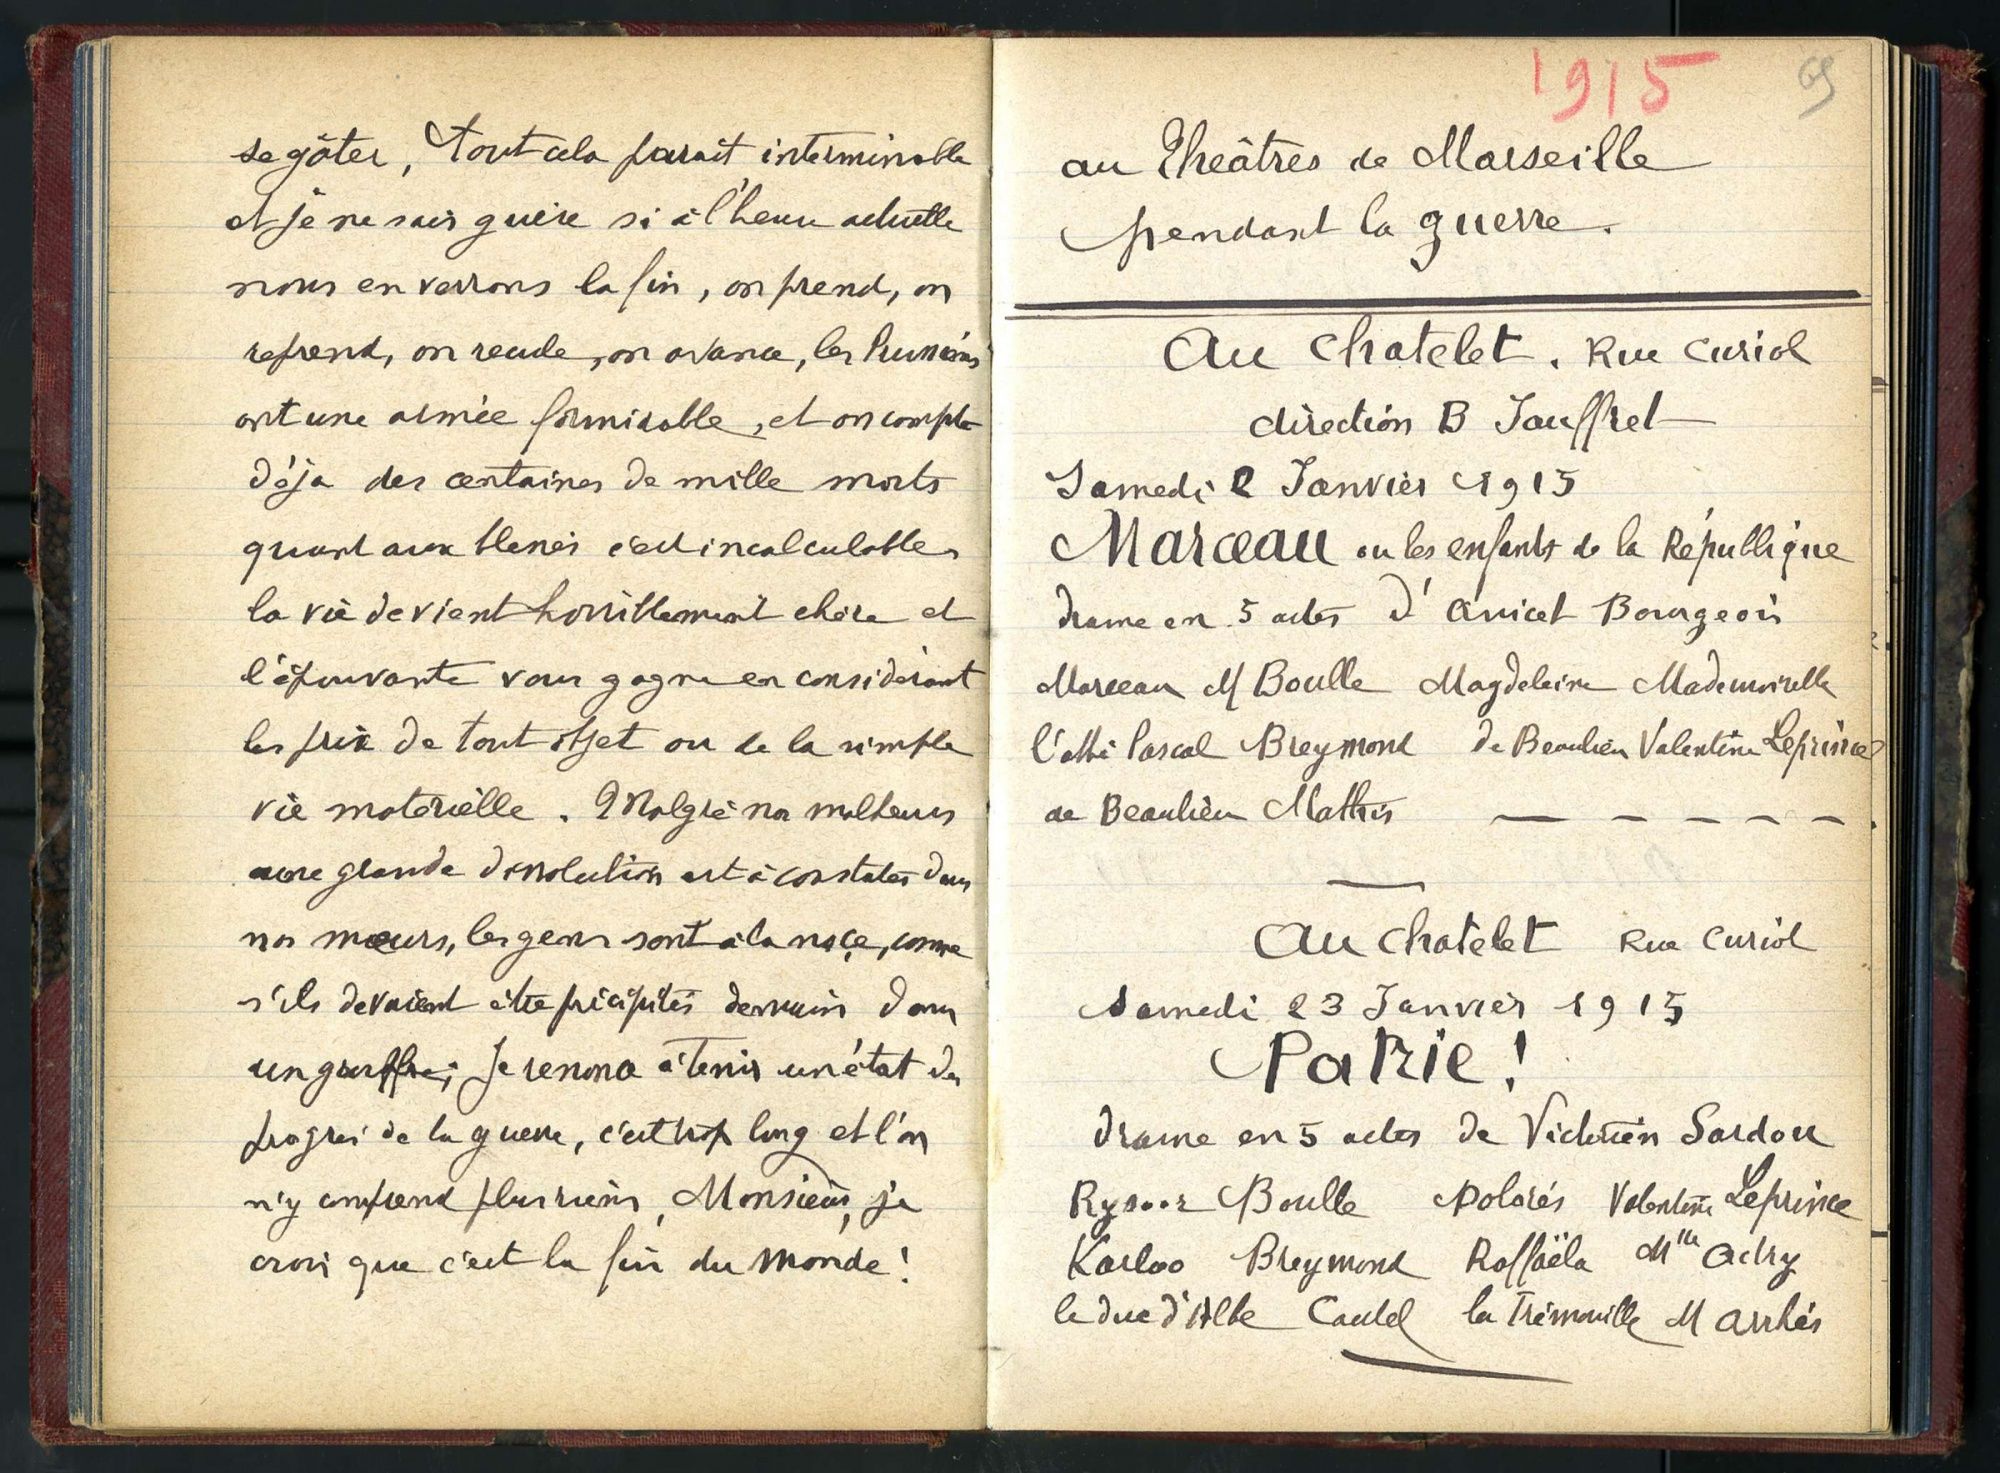 se gâter, Tout cela parait interminable
et je ne sais guère si à l'heure actuelle
nous en verrons la fin, on prend, on
reprend, on recule, on avance, les Prussiens
ont une armée formidable, et on compte
déja des centaines de mille morts
quant aux blessés c'est incalculable
la vie devient horriblement chère et
l'épouvante vous gagne en considérant
les prix de tout objet ou de la simple
vie matérielle. Malgré nos malheurs
une grande dissolution est à constater dans
nos mœurs, les gens sont à la noçe, comme
s'ils devaient être précipités demain dans
un gouffre; Je renonce à tenir un état des
progrès de la guerre, c'est trop long et l'on
n'y comprend plus rien, Monsieur, je
crois que c'est la fin du monde!
1915
69
au Théâtres de Marseille
pendant la guerre.
Au Chatelet. Rue Curiol
direction B Jauffret
Samedi 2 Janvier 1915
Marceau ou les enfants de la République
drame en 5 actes d'Anicet Bourgeois
Marceau M Boulle Magdeleine Mademoiselle
l'abbé Pascal Breymond de Beaulieu Valentine Leprince
de Beaulieu Mathis
Au Chatelet Rue Curiol
Samedi 23 Janvier 1915
Patrie!
Drame en 5 actes de Victorien Sardou
Rysoor Boulle Dolorés Valentine Leprince
Karloo Breymond Raffaëla Mlle Adry
le duc d'Albe Caulet la Trémouille M